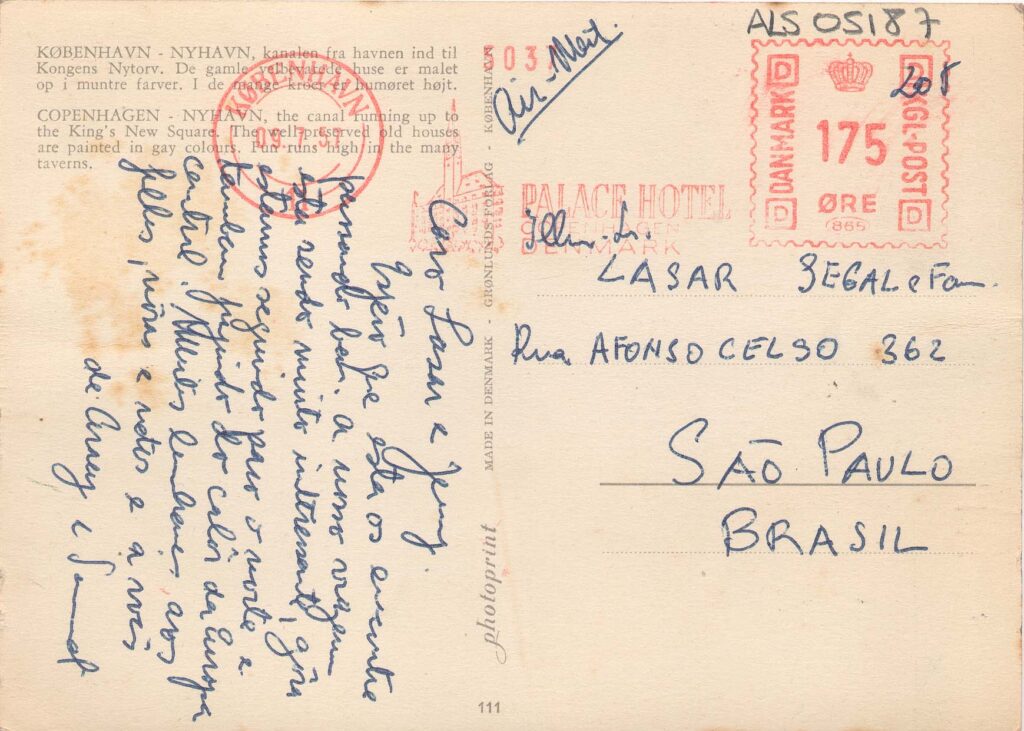 KØBENHAVN - NYHAVN, kanalen fra havnen ind til
Kongens Nytorv. De gamle velbevarede huse er malet
op i muntre farver. I de mange kroer er humøret højt.
COPENHAGEN - NYHAVN, the canal running up to
the King's New Square. The well-preserved old houses
are painted in gay colours. Fun runs high in the many
taverns.
KØBENHAVN
Caro Lasar e Jenny.
que esta os encontre
passando bem. a nossa viagem
esta sendo muito
estamos seguindo para o norte e
tambem fugindo do calôr da Europa
central. lembranças aos
filhos, noras e netos e a voces
de
photoprint
MADE IN DENMARK - GRØNLUNDS FORLAG - KØBENHAVN
111
Air-Mail
ALS 05187
208
DANMARK
175
ØRE
865
KGL-POST
D
D
D
D
PALACE HOTEL
COPENHAGEN
DENMARK
Illmo. Sr.
LASAR SEGAL e Fam.
Rua AFONSO CELSO 362
SÃO PAULO
BRASIL